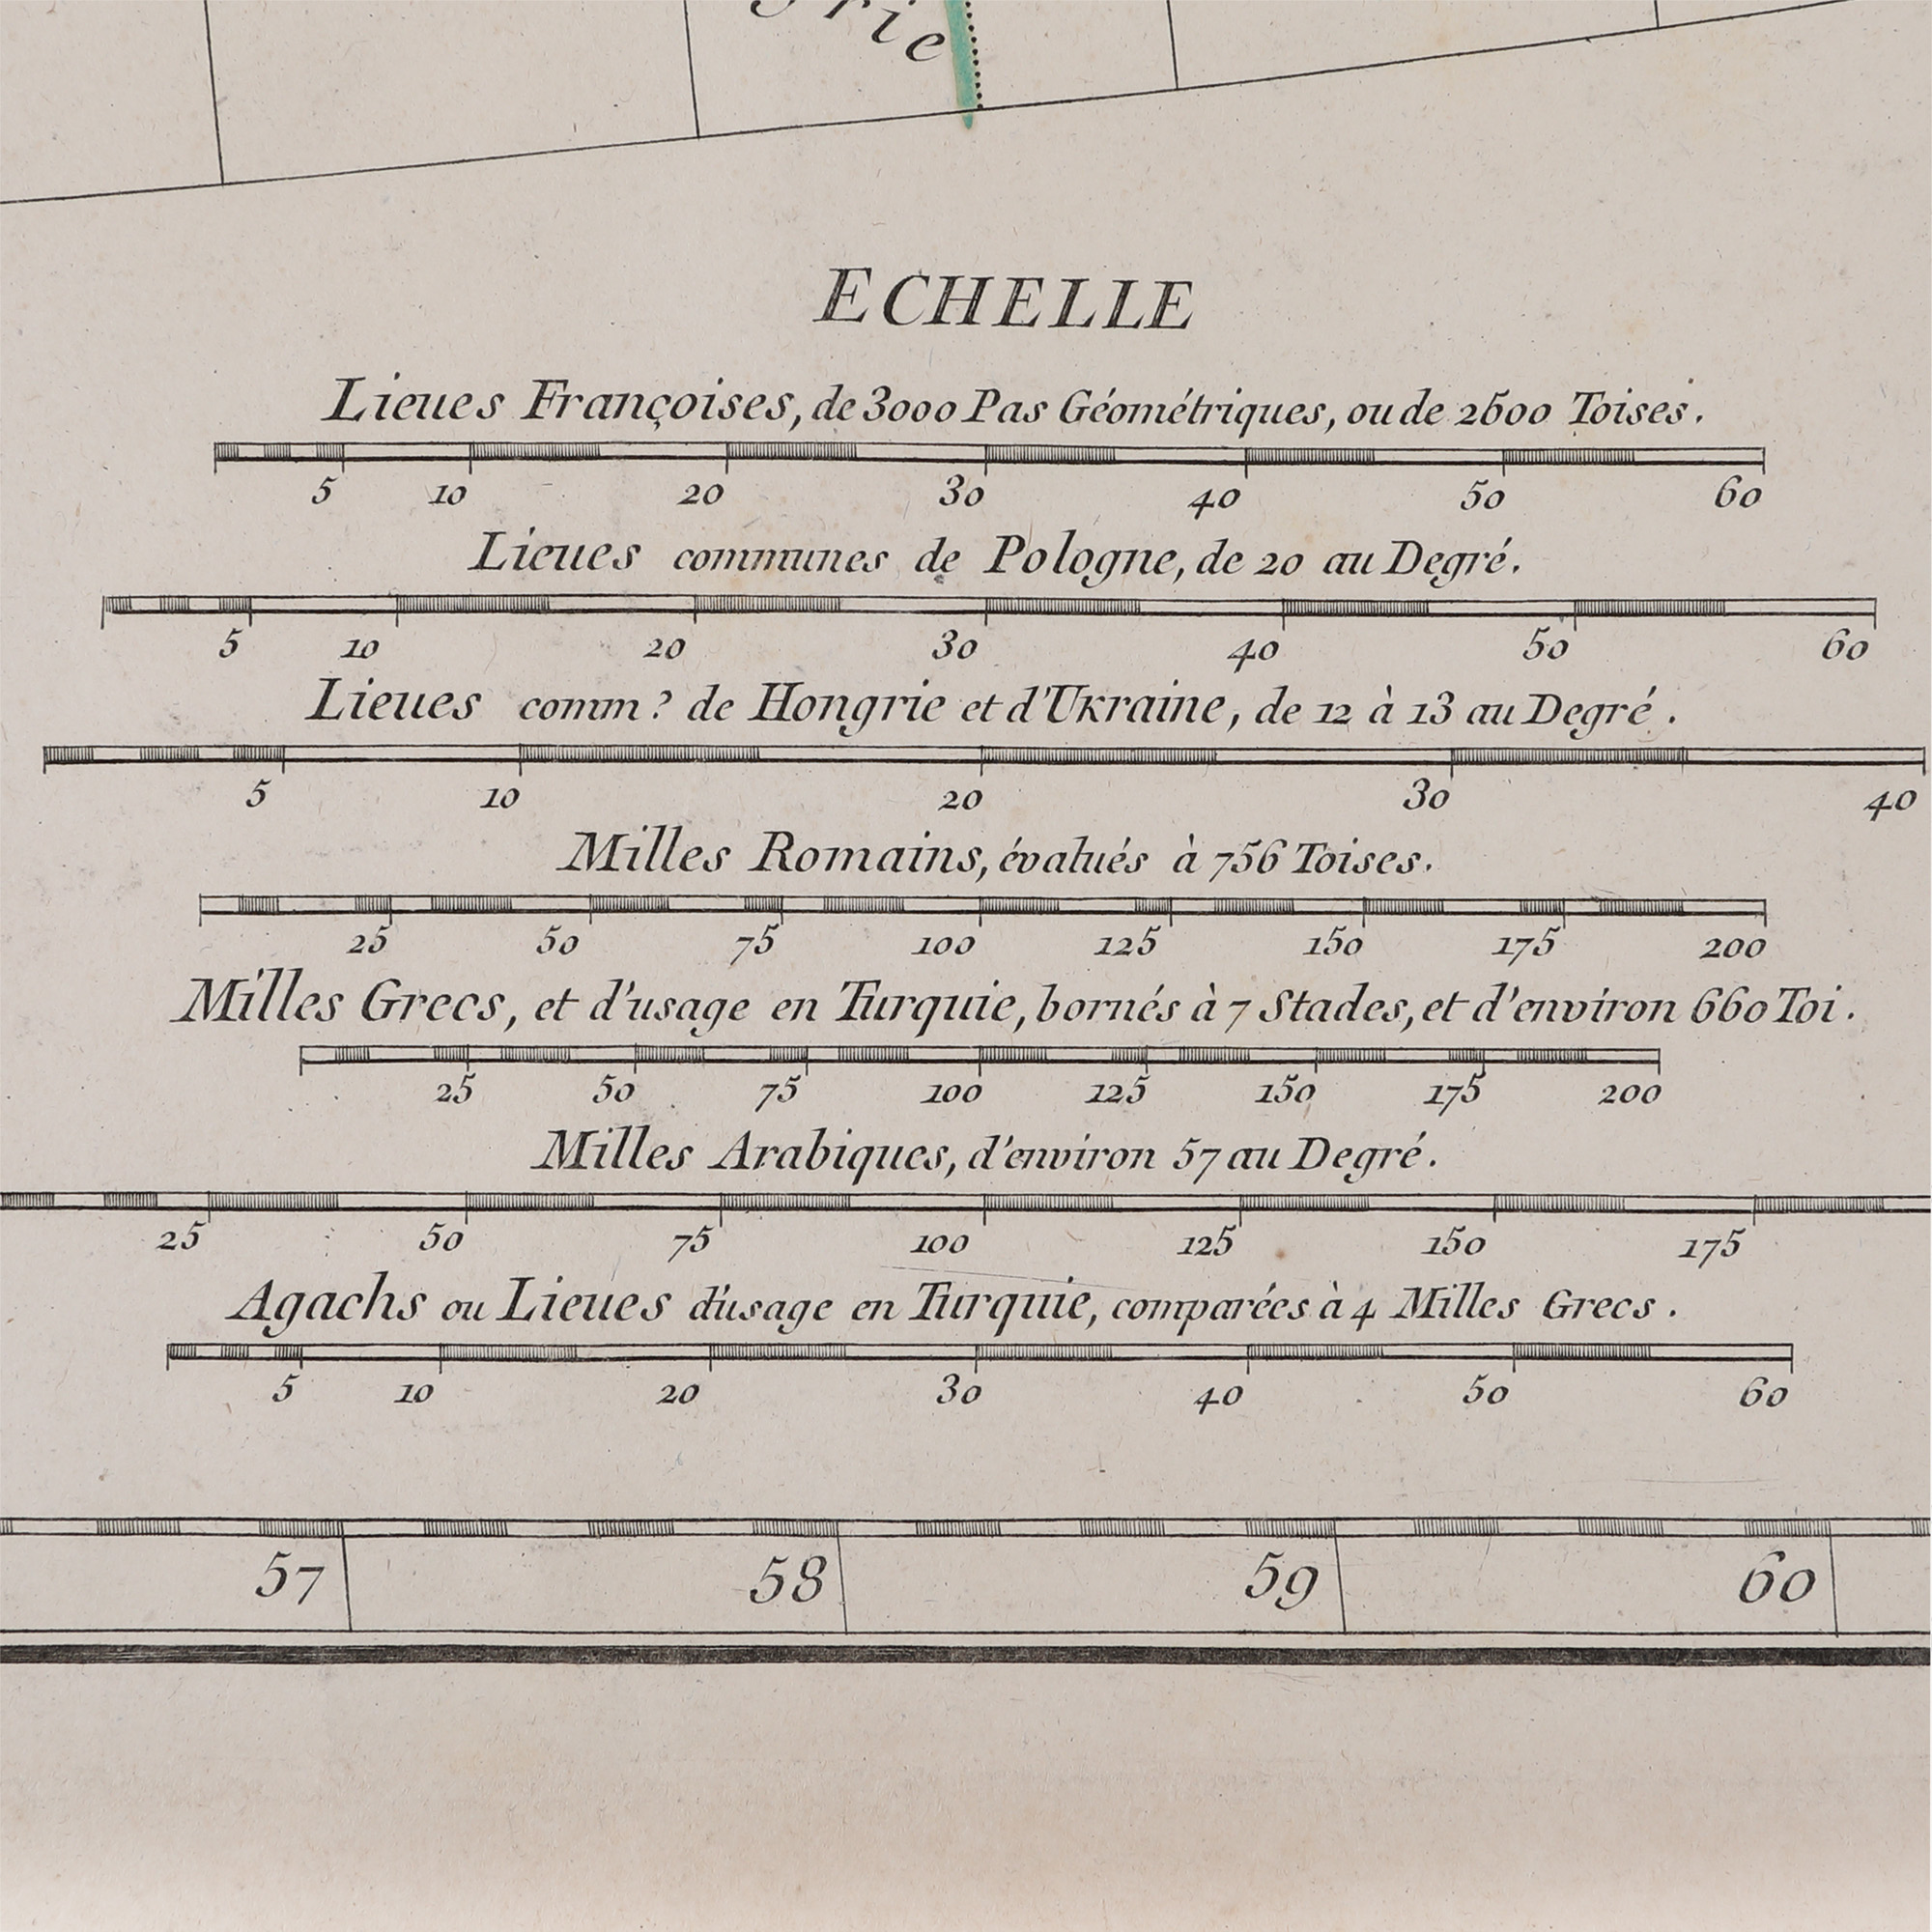 grie
ECHELLE
Lieues Françoises, de 3000 Pas Géométriques, ou de 2500 Toises.
5 10 20 30 40 50 60
Lieues communes de Pologne, de 20 au Degré.
5 10 20 30 40 50 60
Lieues comm? de Hongrie et d'Ukraine, de 12 à 13 au Degré.
5 10 20 30 40
Milles Romains, évalués à 756 Toises.
25 50 75 100 125 150 175 200
Milles Grecs, et d'usage en Turquie, bornés à 7 Stades, et d'environ 660 Toi.
25 50 75 100 125 150 175 200
Milles Arabiques, d'environ 57 au Degré.
25 50 75 100 125 150 175
Agachs ou Lieues d'usage en Turquie, comparées à 4 Milles Grecs.
5 10 20 30 40 50 60
57 58 59 60